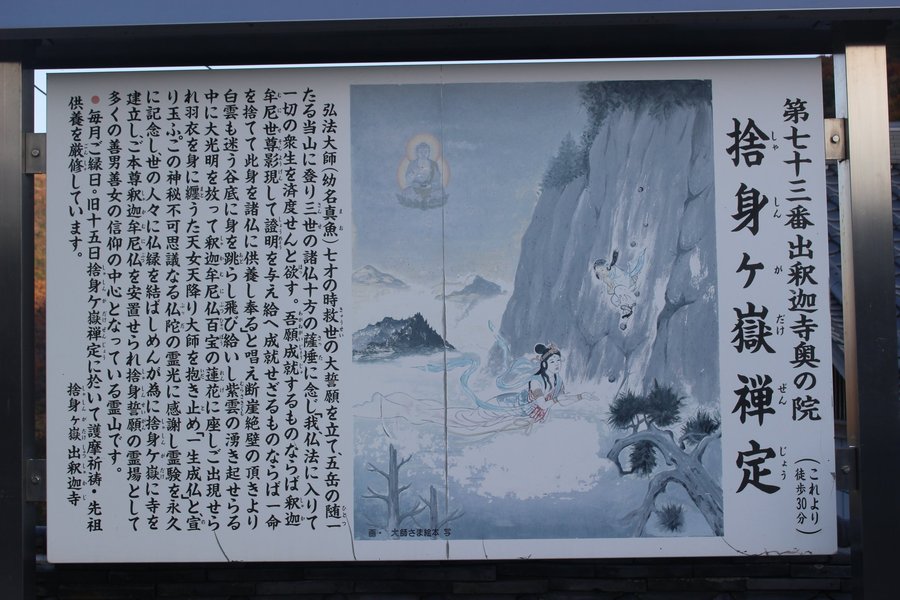 第七十三番出釈迦寺奥の院
(これより
徒歩30分)
捨身ヶ嶽禅定
しゃしんがだけぜんじょう
弘法大師(幼名真魚)七才の時救世の大誓願を立て、五岳の随一
たる当山に登り三世の諸仏十方の薩埵に念じ「我仏法に入りて
一切の衆生を済度せんと欲す。吾願成就するものならば釈迦
牟尼世尊影現して證明を与え給へ成就せざるものならば一命
を捨てて此身を諸仏に供養し奉ると唱え断崖絶壁の頂きより
白雲も迷う谷底に身を跳らし飛び給いし紫雲の湧き起せらる
中に大光明を放って釈迦牟尼仏百宝の蓮花に座しご出現せら
れ羽衣を身に纏うた天女天降り大師を抱き止め「一生成仏」と宣
り玉ふ。この神秘不可思議なる仏陀の霊光に感謝し霊験を永久
に記念し世の人々に仏縁を結ばしめんが為に捨身ヶ嶽に寺を
建立しご本尊釈迦牟尼仏を安置せられ捨身誓願の霊場として
多くの善男善女の信仰の中心となっている霊山です。
●毎月ご縁日。旧十五日捨身ヶ嶽禅定に於いて護摩祈祷・先祖
供養を厳修しています。
捨身ヶ嶽 出釈迦寺
画・ 大師さま絵本 写